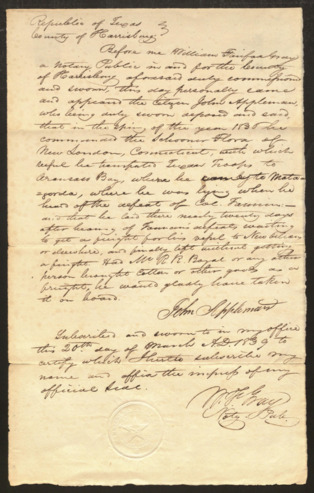 Republic of Texas
County of Harrisburg
Before me William Fairfax Gray
a Notary Public in and for the County
of Harrisburg aforesaid duly commissioned
and sworn, this day personally came
and appeared the Citizen John Appleman,
who being duly sworn deposed and said,
that in the Spring of the year 1836 he
commanded the Schooner Flora of
New London, Connecticut, with which
vessel he transported Texas Troops to
Aransas Bay, where he to Mata-
gorda, where he was lying when he
heard of the defeat of Col. Fannin—
and that he laid there nearly twenty days
after hearing of Fannin's defeat, waiting
to get a freight for his vessel to
or elsewhere, and finally left without getting
a freight. Had Mr. R. R. Royal or any other
person brought Cotton or other goods as a
freight, he would gladly have taken
it on board.
John Appleman
Subscribed and sworn to in my office
this 20th day of March A.D. 1839 to
certify which I hereto subscribe my
name and affix the impress of my
official seal.
W. F. Gray
Noty Pub.